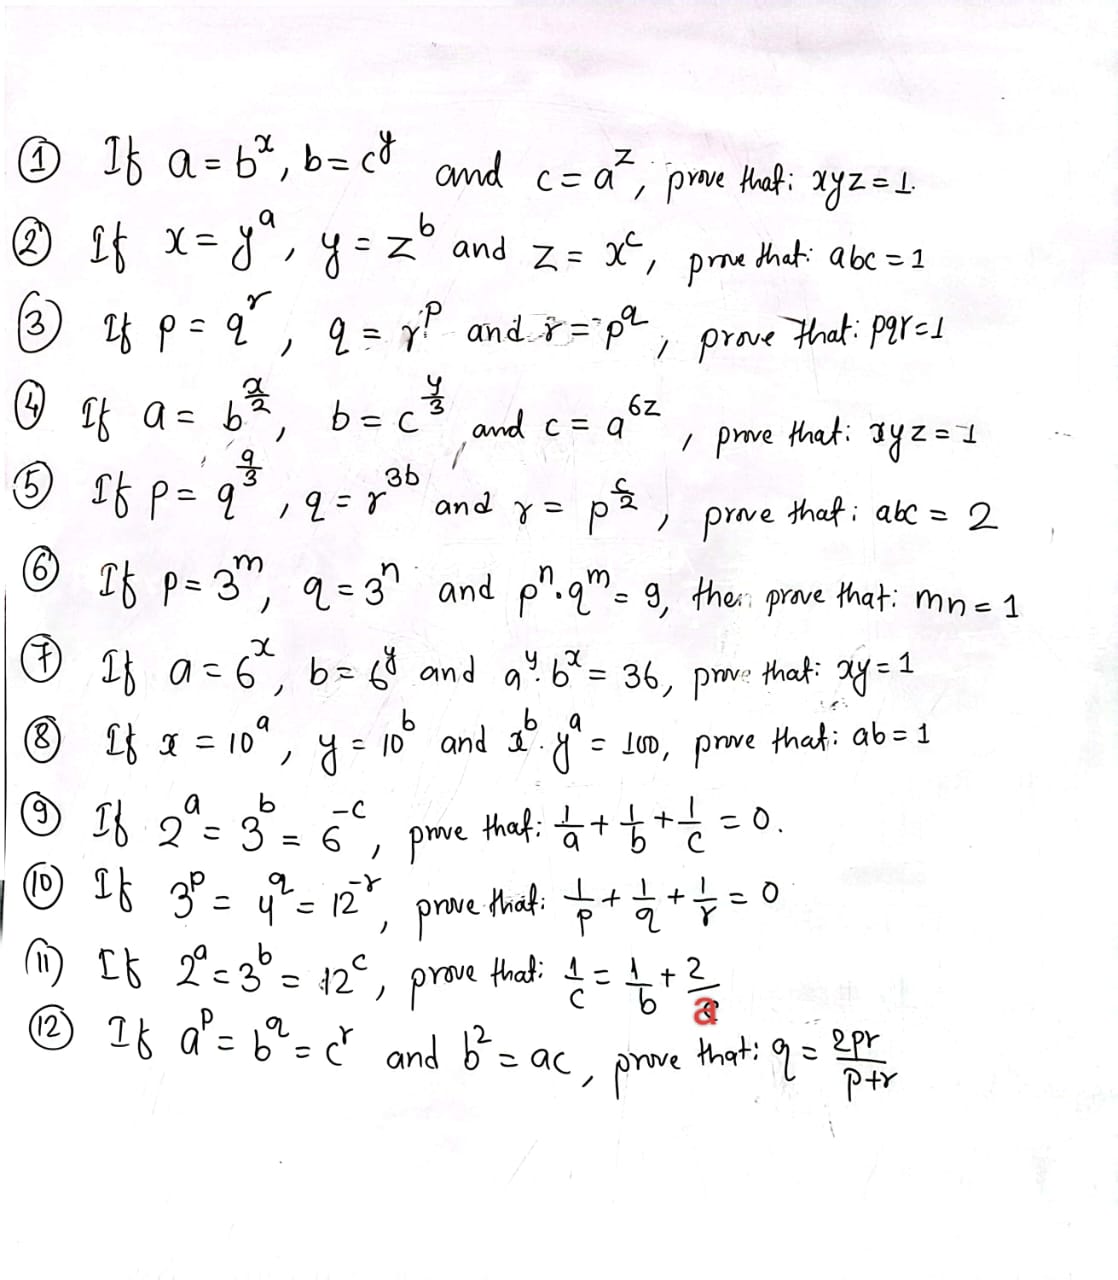 ① If a = b^x, b = c^y and c = a^z, prove that: xyz = 1.
② If x = y^a, y = z^b and z = x^c, prove that: abc = 1
③ If p = q^r, q = r^p and r = p^q, prove that: pqr = 1
④ If a = b^(x/2), b = c^(y/3) and c = a^(6z), prove that: xyz = 1
⑤ If p = q^(a/3), q = r^(3b) and r = p^(c/2), prove that: abc = 2
⑥ If p = 3^m, q = 3^n and p^n . q^m = 9, then prove that: mn = 1
⑦ If a = 6^x, b = 6^y and a^y . b^x = 36, prove that: xy = 1
⑧ If x = 10^a, y = 10^b and x^b . y^a = 100, prove that: ab = 1
⑨ If 2^a = 3^b = 6^(-c), prove that: 1/a + 1/b + 1/c = 0.
⑩ If 3^p = 4^q = 12^(-r), prove that: 1/p + 1/q + 1/r = 0
⑪ If 2^a = 3^b = 12^c, prove that: 1/c = 1/b + 2/a
⑫ If a^p = b^q = c^r and b^2 = ac, prove that: q = 2pr/(p+r)